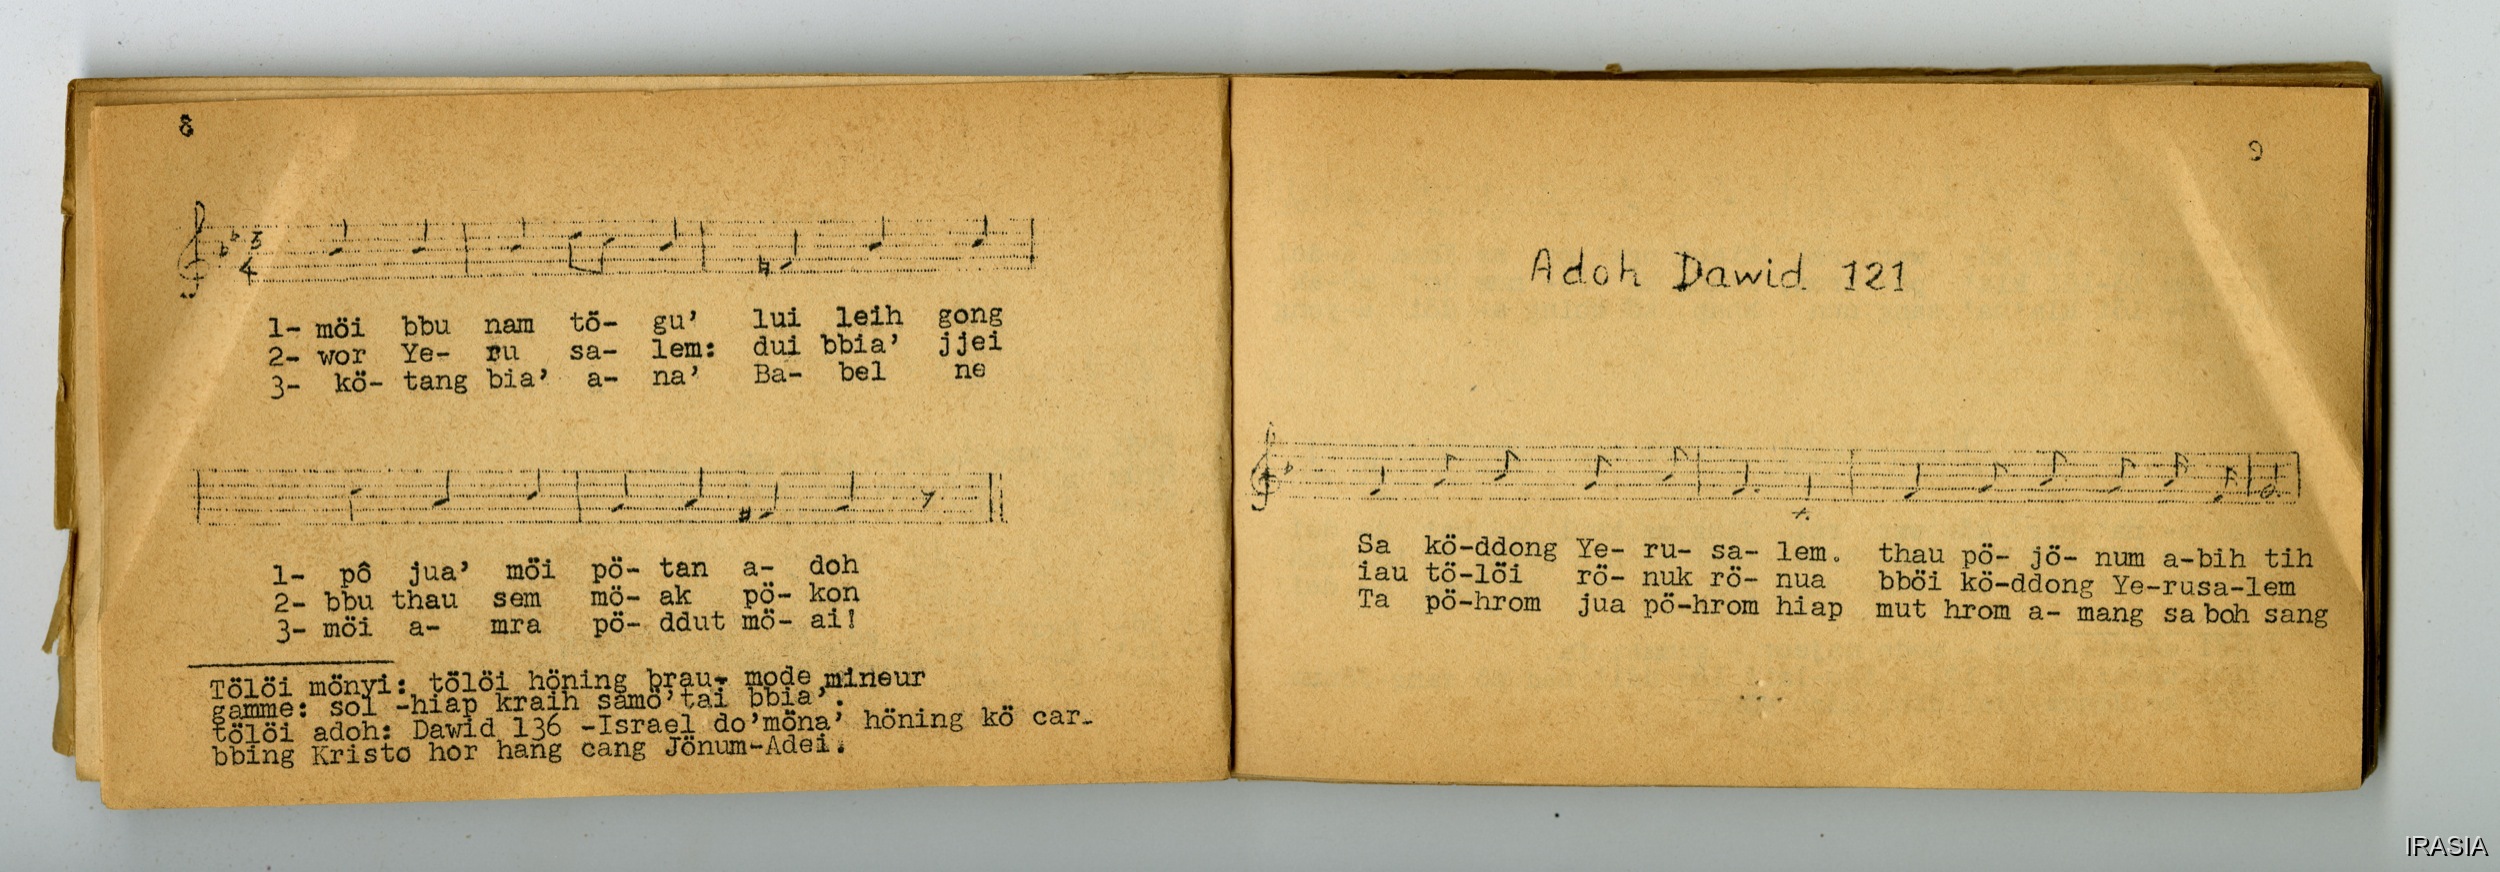 8
3
4
1- möi bbu nam tö- gu' lui leih gong
2- wor Ye- ru sa- lem: dui bbia' jjei
3- kö- tang bia' a- na' Ba- bel ne
1- pô jua' möi pö- tan a- doh
2- bbu thau sem mö- ak pö- kon
3- möi a- mra pö- ddut mö- ai!
Tölöi mönyi: tölöi höning brau- mode mineur
gamme: sol -hiap kraih samö' tai bbia'.
tölöi adoh: Dawid 136 -Israel do'möna' höning kö car-
bbing Kristo hor hang cang Jönum-Adei.
9
Adoh Dawid 121
Sa kö-ddong Ye- ru- sa- lem. thau pö- jö- num a-bih tih
iau tö-löi rö- nuk rö- nua bböi kö-ddong Ye-rusa-lem
Ta pö-hrom jua pö-hrom hiap mut hrom a- mang sa boh sang
IRASIA